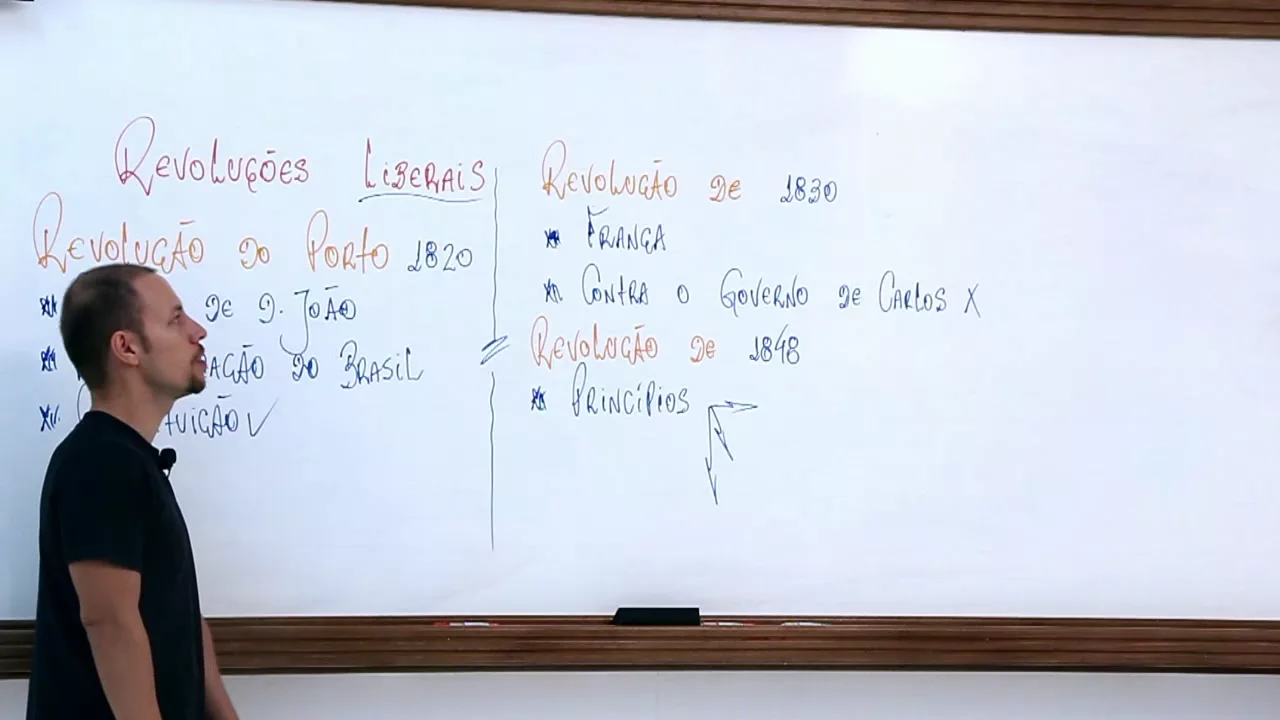 Revoluções Liberais
Revolução do Porto 1820
* de D. João
* ação do Brasil
* tuição ✓
Revolução de 1830
* França
* Contra o Governo de Carlos X
Revolução de 1848
* Princípios